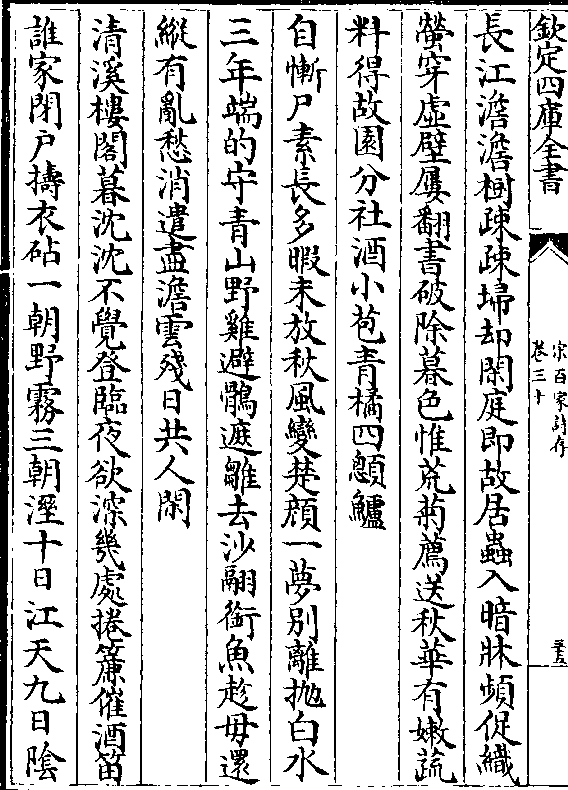 欽定四庫全書
宋百家詩存
卷三十
長江澹澹樹疎疎埽却閑庭即故居蟲入暗牀頻促織
螢穿虛壁屢翻書破除暮色惟荒菊薦送秋華有嫩蔬
料得故園分社酒小苞青橘四顋鱸
自慚尸素長多暇未放秋風變楚顔一夢别離抛白水
三年端的守青山野雞避鶻遮雛去沙翮銜魚趁母還
縱有亂愁消遣盡澹雲殘日共人閑
清溪樓閣暮沈沈不覺登臨夜欲深幾處捲簾催酒笛
誰家閉戶擣衣砧一朝野霧三朝溼十日江天九日陰